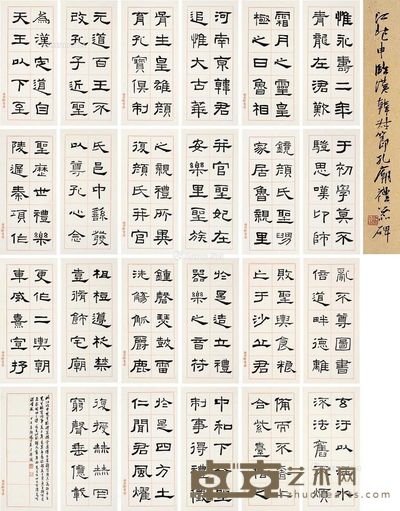 江兆申臨漢韓敕節孔廟禮器碑
惟永壽二年
青龍在涒歎
霜月之靈皇
極之日魯相
河南京韓君
追惟大古華
胥生皇雄顏
育孔寶俱制
元道百王不
改孔子近聖
為漢定道自
天王以下至
于初學莫不
駿思嘆卬師
鏡顏氏聖舅
家居魯親里
并官聖妃在
安樂里聖族
之親禮所異
復顏氏并官
氏邑中繇發
以尊孔心念
聖歷世禮樂
陵遲秦項作
亂不尊圖書
倍道畔德離
敗聖輿食糧
亡于沙丘君
於是造立禮
器樂之音苻
鍾磬瑟鼓雷
洗觴觚爵鹿
柤梪籩柉禁
壺脩飾宅廟
更作二輿朝
車威熹宣抒
玄汙以注
流法舊不煩
備而不奢上
合紫臺稽之
中和下合聖
制事得禮儀
於是四方士
仁聞君風燿
窮聲垂億載
卓克艺术网